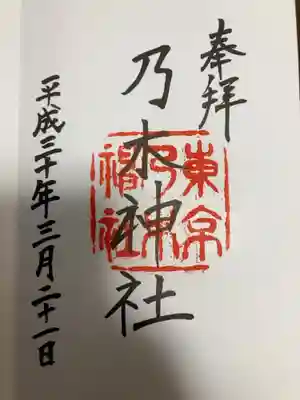 奉拜
乃木神社
東京乃木神社
平成三十年三月二十一日